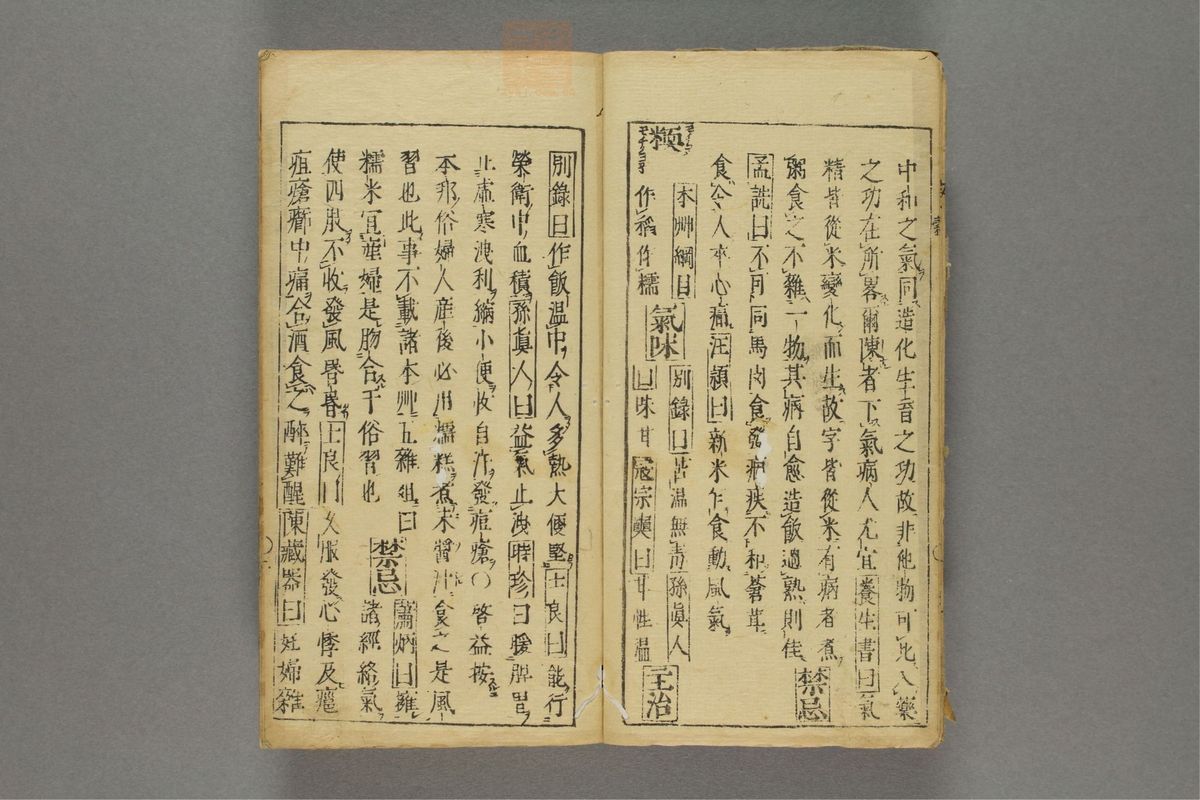 中和之氣同造化生育之功故非他物可比入藥
之功在所畧爾陳者下氣病人尤宜養生書曰氣
精皆從米變化而生故字皆從米有病者煮
粥食之不雜一物其病自愈造飯過熟則佳
禁忌
孟詵曰不可同馬肉食發痼疾不和蒼耳
食令人卒心痛汪頴曰新米乍食動風氣
本艸綱目
作稬作糯
氣味
別錄曰苦温無毒孫眞人
曰味甘寇宗奭曰甘性温
主治
別錄曰作飯温中令人多熱大便堅士良曰能行
榮衛中血積孫眞人曰益氣止洩時珍曰暖脾胃
止虛寒洩利縮小便收自汗發痘瘡○啓益按
本邦俗婦人産後必用糯糕煮末醬汁食之是風
習也此事不載諸本艸五雜俎曰
糯米宜産婦是脗合于俗習也
禁忌
蕭炳曰雍
諸經絡氣
使四肢不收發風昏昏士良曰久服發心悸及癰
疽瘡癤中痛合酒食之醉難醒陳藏器曰妊婦雜